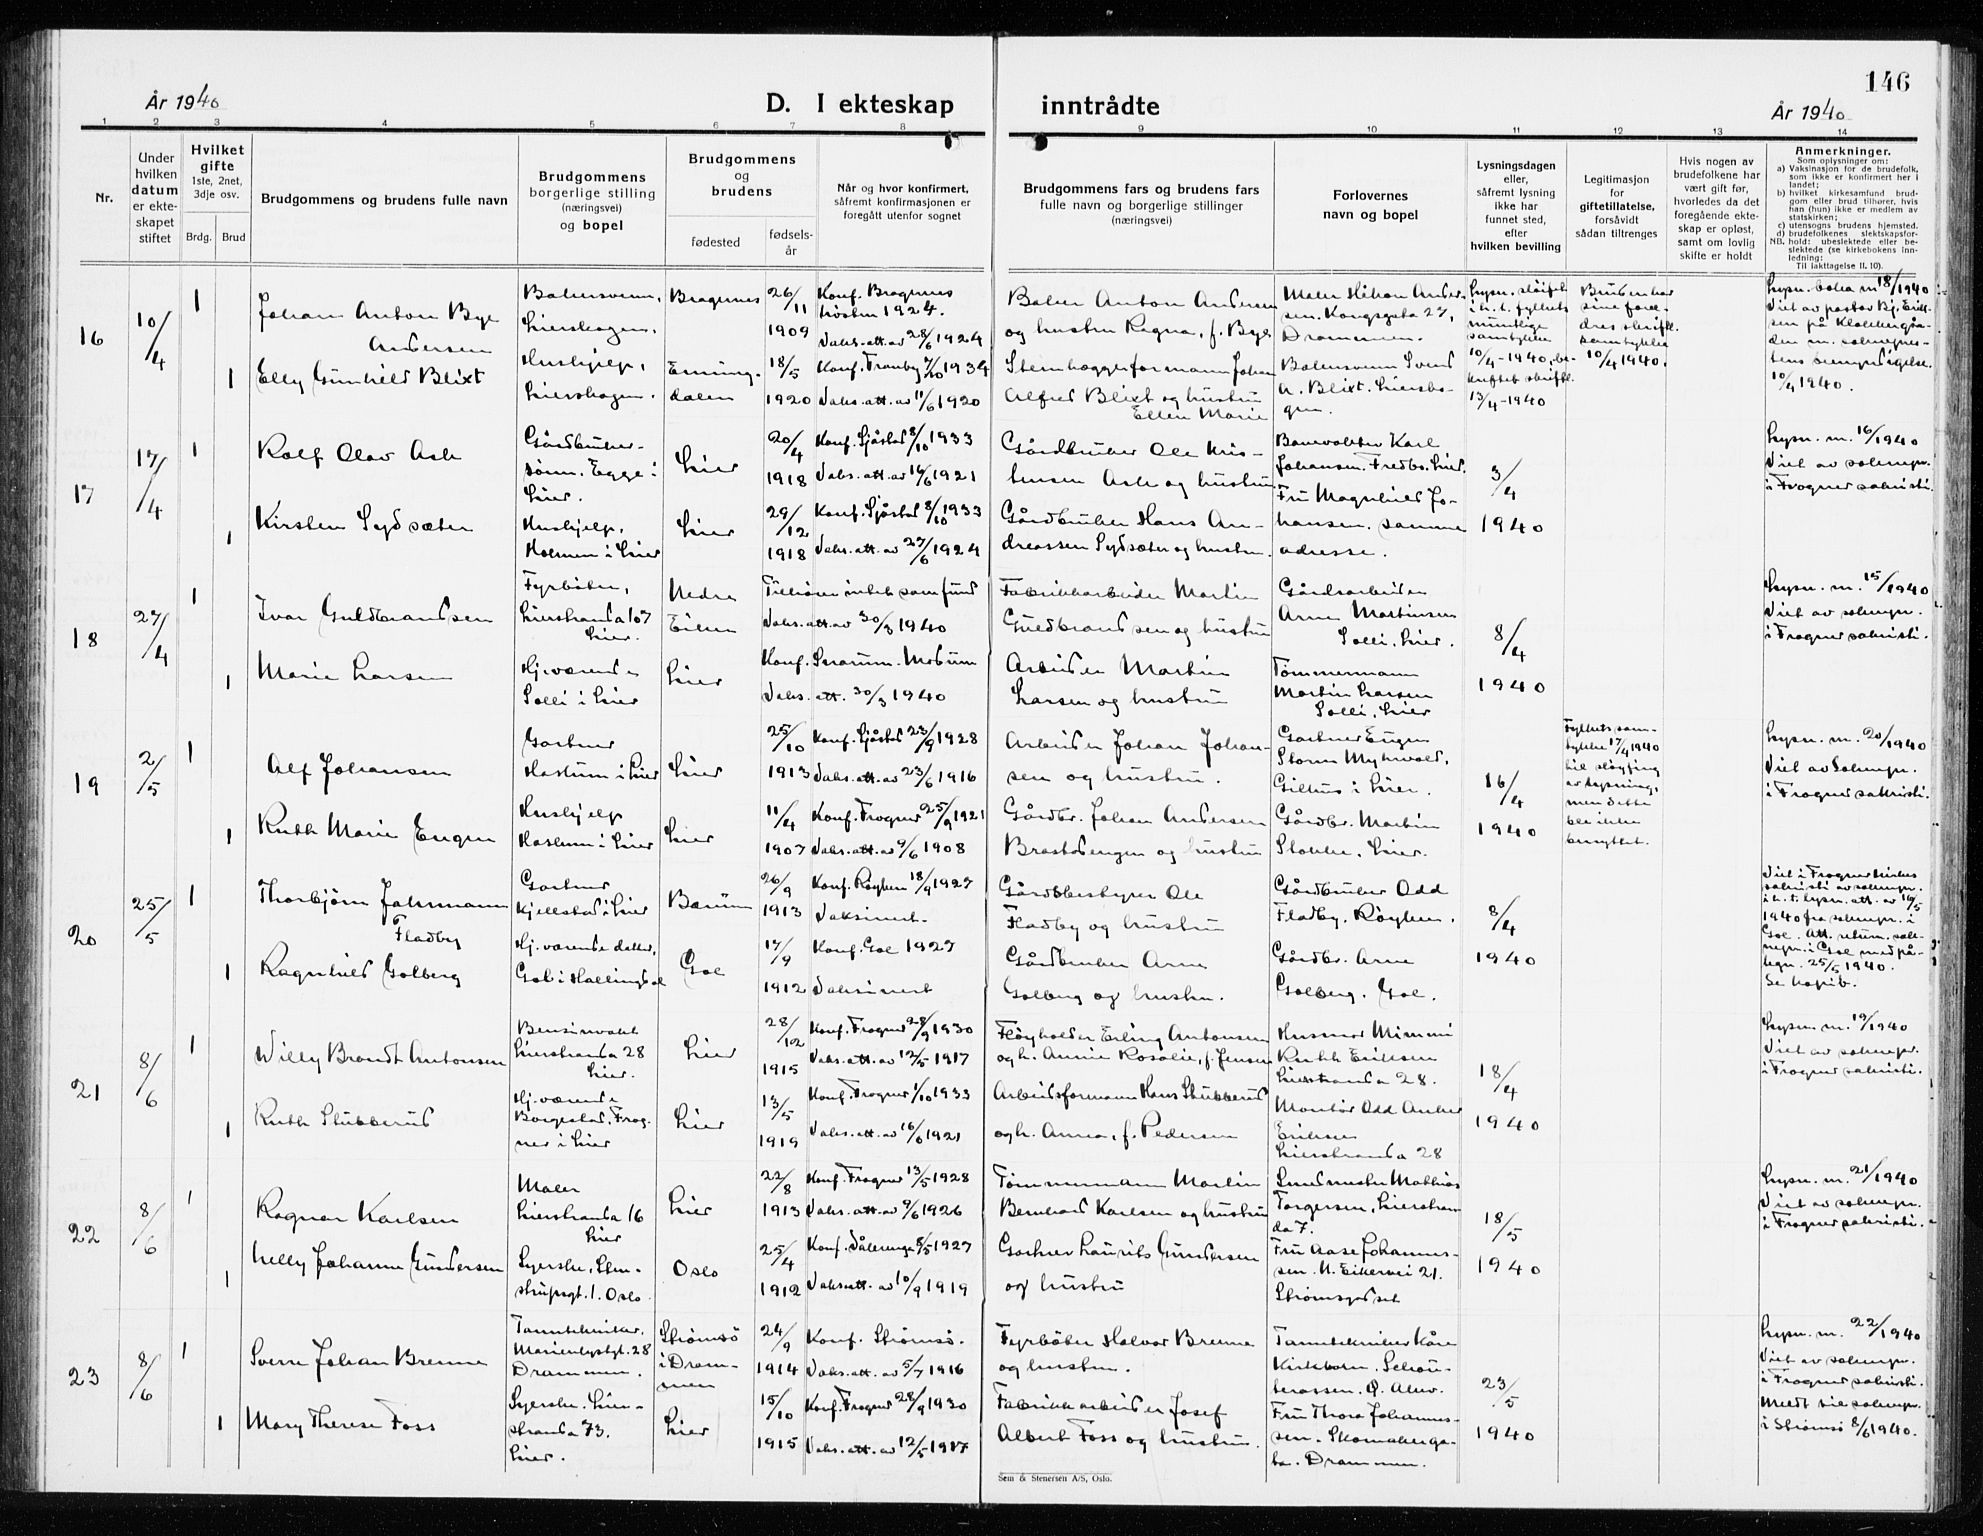 146
År 1940
D. I ekteskap
inntrådte
År 1940
1 2 3 4 5 6 7 8 9 10 11 12 13 14
Nr.
Under
hvilken
datum
er ekte-
skapet
stiftet
Hvilket
gifte
1ste, 2net,
3dje osv.
Brdg. Brud
Brudgommens og brudens fulle navn
Brudgommens
borgerlige stilling
(næringsvei)
og bopel
Brudgommens
og
brudens
fødested
fødsels-
år
Når og hvor konfirmert,
såfremt konfirmasjonen er
foregått utenfor sognet
Brudgommens fars og brudens fars
fulle navn og borgerlige stillinger
(næringsvei)
Forlovernes
navn og bopel
Lysningsdagen
eller,
såfremt lysning
ikke har
funnet sted,
efter
hvilken bevilling
Legitimasjon
for
giftetillatelse,
forsåvidt
sådan tiltrenges
Hvis nogen av
brudefolkene har
vært gift før,
hvorledes da det
foregående ekte-
skap er opløst,
samt om lovlig
skifte er holdt
Anmerkninger.
Som oplysninger om:
a) Vaksinasjon for de brudefolk,
som ikke er konfirmert her i
landet;
b) hvilket kirkesamfund brud-
gom eller brud tilhører, hvis
han (hun) ikke er medlem av
statskirken;
c) utensogns brudens hjemsted.
d) brudefolkenes slektskapsfor-
NB. hold: ubeslektede eller be-
slektede (se kirkebokens inn-
ledning;
Til iakttagelse II. 10).
16
10/4
1
Johan Anton Bye
Andersen
Bakersvenn,
Lierskogen.
Bragernes
26/11
1909
Konf. Bragernes
høsten 1924.
Vaks. att. av 28/6 1924
Baker Anton Andersen
og hustru Ragna, f. Bye
Maler Håkon Ander-
sen. Kongsgata 27,
Drammen.
1
Elly Gunhild Blixt
Hushjelp,
Lierskogen.
Enning-
dalen
18/5
1920
Konf. Tranby 7/10 1934
Vaks. att. av 11/6 1920
Stenhoggerformann Johan
Alfred Blixt og hustru
Ellen Marie
Bakersvenn Svend
A. Blixt. Liersko-
gen.
10/4-1940, be-
kreftet skriftl.
13/4-1940
Bruden har
sine forel-
dres skriftl.
samtykke
10/4 1940.
10/4 1940.
17
17/4
1
Rolf Olav Ask
Gårdbruker-
sønn. Egge i
Lier.
Lier
20/4
1918
Konf. Sjåstad 8/10 1933
Vaks. att. av 16/6 1921
Gårdbruker Ole Kris-
tensen Ask og hustru
Banevokter Karl
Johansen. Fredbo. Lier.
1
Kirsten Sydsæter
Hushjelp.
Holmen i Lier
Lier
29/12
1918
Konf. Sjåstad 8/10 1933
Vaks. att. av 27/6 1924
Gårdbruker Hans An-
dreassen Sydsæter og hustru.
Fru Magnhild Jo-
hansen. samme
adresse.
3/4
1940
Lysn. m. 16/1940
Viet av soknepr.
i Frogner sakristi.
18
27/4
1
Ivar Guldbrandsen
Fyrbøter,
Lierstranda 107
Lier.
Nedre
Eiker
Tilhører intet samfund
Vaks. att. av 30/3 1940
Fabrikkarbeider Martin
Guldbrandsen og hustru
Gårdsarbeider
Arne Martinsen
Solli, Lier.
1
Marie Larsen
Hj. værende
Solli i Lier
Lier
Konf. Snarum. Modum
Vaks. att. 30/3 1940
Arbeider Martin
Larsen og hustru
Tømmermann
Martin Larsen
Solli, Lier
8/4
1940
Lysn. m. 15/1940
Viet av soknepr.
i Frogner sakristi.
19
2/5
1
Alf Johansen
Gartner
Haslum i Lier
Lier
25/10
1913
Konf. Sjåstad 23/9 1928
Vaks. att. av 23/6 1916
Arbeider Johan Johan-
sen og hustru.
Gartner Eugen
Storm Myhrvold,
Gilhus i Lier.
1
Ruth Marie Engen
Hushjelp
Haslum i Lier
Lier
11/4
1907
Konf. Frogner 25/9 1921
Vaks. att. av 9/6 1908
Gårdbr. Johan Andersen
Brastadengen og hustru
Gårdbr. Martin
Stokke, Lier.
16/4
1940
Fylkets sam-
tykke 17/4 1940
til sløyfing
av lysning,
men dette
ble ikke
benyttet.
Lysn. m. 20/1940
Viet av soknepr.
i Frogner sakristi.
20
25/5
1
Thorbjørn Jahrmann
Fladby
Gartner
Kjellstad i Lier
Bærum
26/9
1913
Konf. Røyken 18/9 1927
Vaksinert.
Gårdsbestyrer Ole
Fladby og hustru
Gårdbruker Odd
Fladby. Røyken.
1
Ragnhild Golberg
Hj. værende datter,
Gol i Hallingdal
Gol
17/9
1912
Konf. Gol 1927
Vaksinert
Gårdbruker Arne
Golberg og hustru.
Gårdbr. Arne
Golberg. Gol.
8/4
1940
Viet i Frogner kirkes
sakristi av soknepr.
i h. t. lysn. att. av 16/5
1940 fra soknepr. i
Gol. Att. return. sok-
nepr. i Gol med på-
tegn. 25/5 1940.
Se kopib.
21
8/6
1
Willy Brandt Antonsen
Bensinvakt
Lierstranda 28
Lier.
Lier
28/12
1915
Konf. Frogner 28/9 1930
Vaks. att. av 12/5 1917
Fløyholder Erling Antonsen
og h. Annie Rosalie, f. Jensen
Husmor Mimmi
Ruth Eriksen
Lierstranda 28.
1
Ruth Stubberud
Hj. værende
Borgestad, Frog-
ner i Lier
Lier
13/5
1919
Konf. Frogner 1/10 1933
Vaks. att. av 16/6 1921
Arbeidsformann Hans Stubberud
og h. Anna, f. Pedersen
Montør Odd Anker
Eriksen
Lierstranda 28
18/4
1940
Lysn. m. 19/1940
Viet av soknepr.
i Frogner sakristi.
22
8/6
1
Ragnar Karlsen
Maler
Lierstranda 16
Lier
Lier
22/8
1913
Konf. Frogner 13/5 1928
Vaks. att. av 9/6 1926
Tømmermann Martin
Bernhard Karlsen og hustru
Smedmester Mathias
Torgersen, Lierstran-
da 7.
1
Nelly Johanne Gundersen
Syerske, Slem-
Oslo
25/4
1912
Konf. Vålerenga 8/5 1927
Vaks. att. av 10/9 1919
Gartner Laurits Gundersen
og hustru
Fru Aase Johannes-
sen. N. Eikervei 21.
Strømsgodset
18/5
1940
Lysn. m. 21/1940
Viet av soknepr.
i Frogner sakristi.
23
8/6
1
Sverre Johan Brenne
Tanntekniker.
Marienlystgt. 28
Drammen.
Strømsø
i Dram-
men
24/9
1914
Konf. Strømsø.
Vaks. att. av 5/7 1916
Fyrbøter Halvor Brenne
og hustru.
Tanntekniker Kåre
1
Mary Therese Foss
Syerske. Lier-
stranda 73.
Lier.
Lier
15/10
1915
Konf. Frogner 28/9 1930
Vaks. att. av 12/5 1917
Fabrikkarbeider Josef
Albert Foss og hustru.
Fru Thora Johannes-
sen. Skomakerga-
ta. Drammen.
23/5
1940
Lysn. m. 22/1940
Viet av soknepr.
i Frogner sakristi.
Meldt til soknepr.
i Strømsø 8/6 1940.
Sem & Stenersen A/S, Oslo.